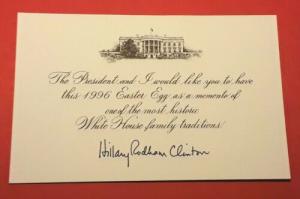 The President and I would like you to have
this 1996 Easter Egg as a memento of
one of the most historic
White House family traditions.
Hillary Rodham Clinton